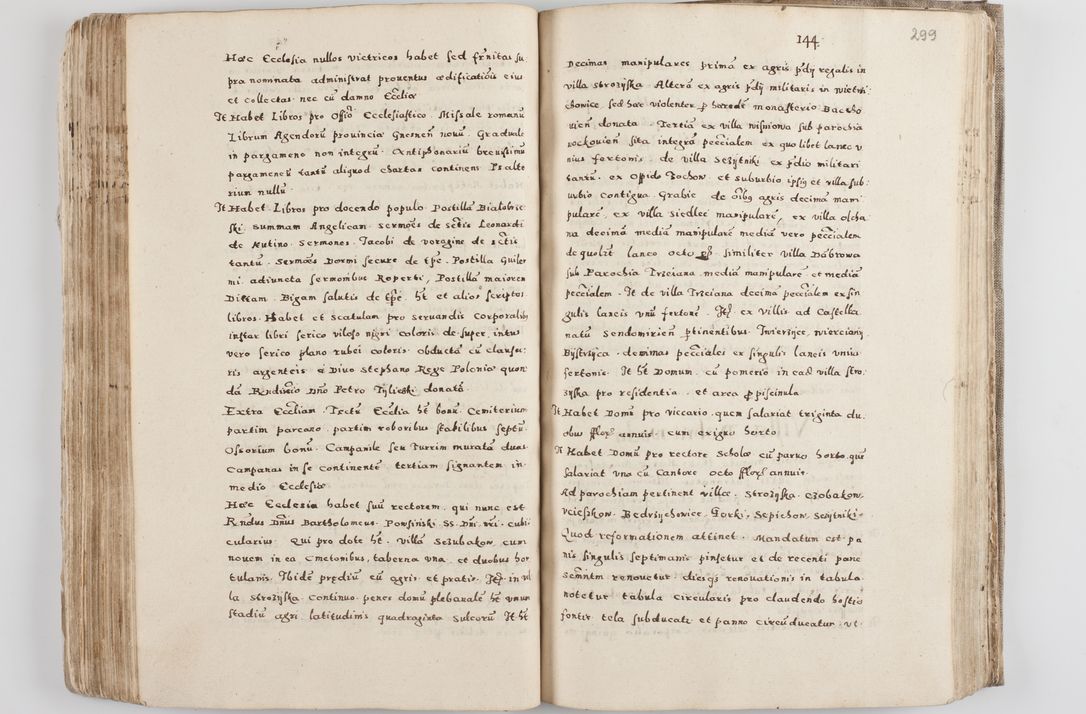 Hæc Ecclesia nullos victricos habet sed fr̃nitas su
pra nominata administrat prouentus ædificatiõis eius
et collectas nec cũ damno Eccliæ
It Habet Libros pro Offõ Ecclesiastico. Missale romanũ
Librum Agendorũ prouinciæ Gnesneñ nouũ. Graduale
in pargameno non integrũ. Antiphonariũ breuissimũ
pargameneũ tantũ aliquod chartas continens Psalte
rium nullũ.
It Habet Libros pro docendo populo. Postilla Białobrze
ski. Summam Angelicam. sermões de sctis Leonardi
de Vutino. Sermones. Iacobi de voragine de sctis
tantũ. Sermões Dormi secure de tp̃e. Postilla Guiler
mi. adiuncta sermonibus Roperti, Postillã maiorem
Dittam. Bigam salutis de tp̃e. h̃t et alios scriptos
libros. Habet et scatulam pro seruandis corporalibꝰ
instar libri serico viloso nigri coloris de super, intus
vero serico plano rubei coloris. obductã cũ clausu:
ris argenteis a Diuo Stephano Rege Poloniæ quon
dã Rendissio Dño Petro Tylieski donatã.
Extra Eccliam. Tectũ Ecclia h̃t bonũ. Cemiterium
partim parcazo. partim roboribus stabilibus septũ.
Ossorium bonũ. Campanile seu Turrim muratã duas
Campanas in se continentẽ tertiam signantem in
medio Ecclesiæ
Hæc Ecclesia habet suũ rectorem. qui nunc est
Rndus Dñus Bartholomeus. Powsiński. SS. Dñi. nri. cubi
cularius. Qui pro dote h̃t. villã Sczubakow, cum
nouem in ea cmetonibus, taberna vna, et duobus hor
tulanis. Ibidẽ prędiũ cũ agris. et pratis. Itẽ in vil
la Strozyska. Continuo. penes domũ plebanalẽ h̃t vnum
stadiũ agri latitudinis quadraginta sulcorũ It h̃t
144
299
Decimas manipulares primã ex agris p̃dij regalis in
villa Strozyska Alterã ex agris p̃dij militaris in wietrzi
chowice, sed hæc violenter ꝓ hæredẽ monasterio Baetho
uień. donata. Tertiã ex villa wisniowa sub parochia
integrã pecũialem ex quo libet laneo v
nius fertonis. de villa Seżytniki ex p̃dio militari
tantũ. ex Oppido Zochow. et suburbio ipsiꝰ et villa sub:
urbio contigua. Grabie de oĩbꝰ agris decimã mani
pularẽ, ex villa Siedlec manipularẽ, ex villa olcha
na decimã mediã manipularẽ mediã vero pecũialem
de quolibt laneo octo g̃ꝶ similiter villa Dąbrowa
sub Parochia Trzciana. mediã manipularẽ et mediã
pecũialem. It de villa Trzciana decimã pecũialem ex sin
gulis laneis vnũ fertonẽ. Itẽ ex villis ad Castella
natũ Sendomirień ꝑtinentibus. Zwierzyce, wierciany
Bystrzyca. decimas pecũiales ex singulis laneis vnius
fertonis. It h̃t Domum. cũ pomerio in ead villa Stro:
zyska pro residentia. et area ꝓ piscinula.
It Habet Domũ pro viccario. quem salariat triginta du:
obus flloꝶ annuis. cum exiguo horto.
It Habet Domũ pro rectore scholæ cũ paruo horto, quẽ
salariat vno cũ Cantore octo flloꝶ annuis.
Ad parochiam pertinent villæ. Strozyska. Czobakow.
Bedrzychowice. Gorki. Sepichow Seżytniki
Quod reformationem attinet. Mandatum est. pa
nis singulis septimanis pinsetur et de recenti pane
semñtm renouetur. diesqꝫ renouationis in tabula
notetur tabula circularis pro claudendo hostio
fontis tela subducatr et panno circũducatur, vt